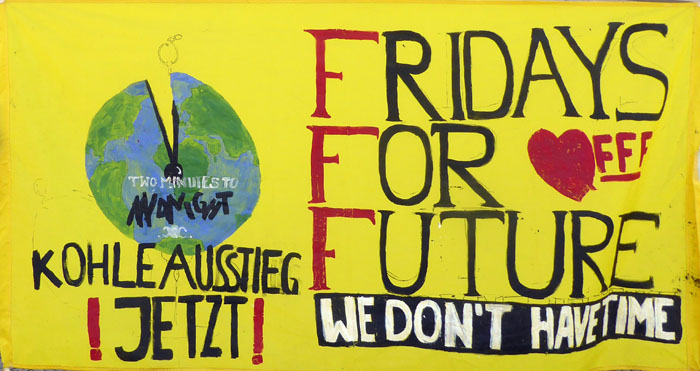 TWO MINUTES TO
MIDNIGHT
KOHLEAUSSTIEG
! JETZT !
FRIDAYS
FOR
FFF
FUTURE
WE DON'T HAVE TIME